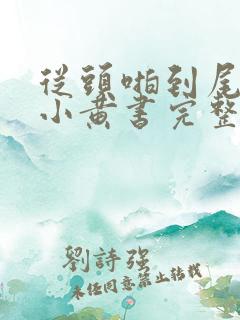 從頭啪到尾
小黄書完整
劉詩強
未经同意禁止转载